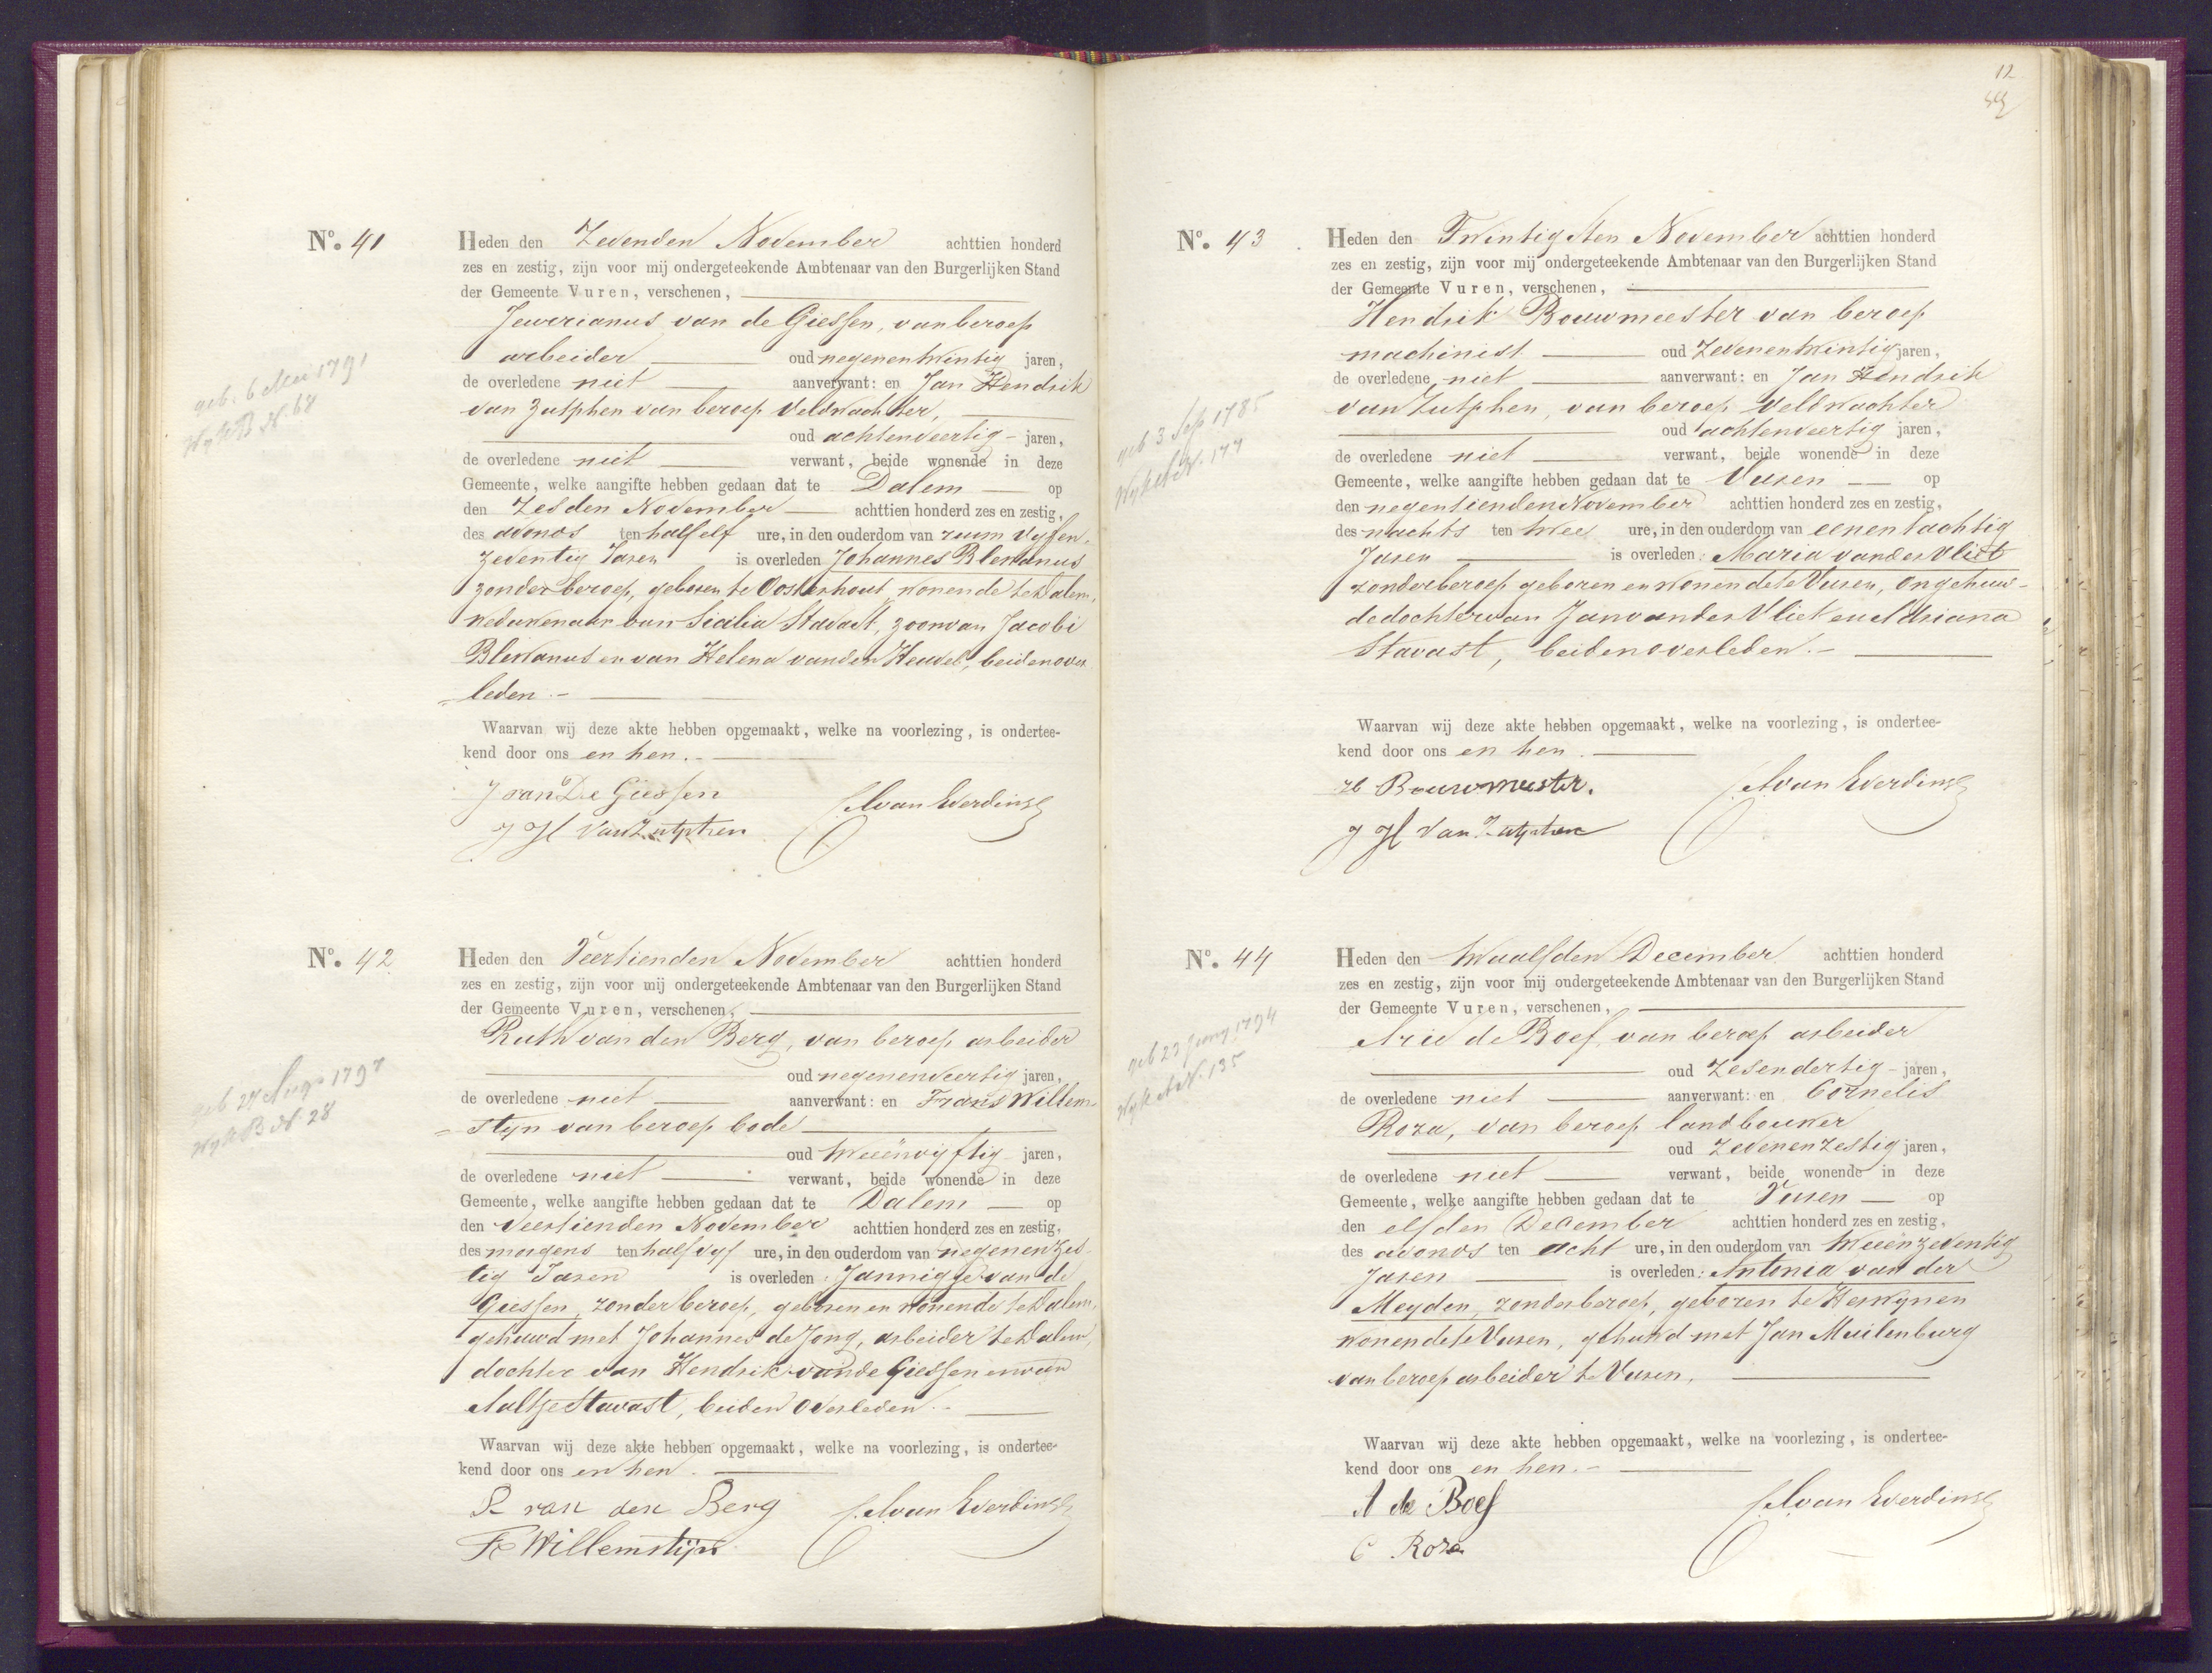 No. 41
Heden den Zevenden November achttien honderd
zes en zestig, zijn voor mij ondergeteekende Ambtenaar van den Burgerlijken Stand
der Gemeente Vuren, verschenen,
Jeuvrianus van de Giessen, van beroep
arbeider oud negenentwintig jaren,
de overledene niet aanverwant: en Jan Hendrik
van Zutphen van beroep Veldwachter,
oud achtenveertig - jaren,
de overledene niet verwant, beide wonende in deze
Gemeente, welke aangifte hebben gedaan dat te Dalem op
den Zesden November achttien honderd zes en zestig,
des avonds ten half elf ure, in den ouderdom van ruim vyfen-
zeventig Jaren is overleden Johannes Blerkanus
zonder beroep, geboren te Oosterhout, wonende te Dalem,
weduwenaar van Sicilia Stavast, zoon van Jacobi
Blerkanus en van Helena van den Heuvel, beiden over
=leden.-
Waarvan wij deze akte hebben opgemaakt, welke na voorlezing, is ondertee-
kend door ons en hen.-
J van De Giessen
J H Van Zutphen
van Everdinge
geb. 6 Mei 1791
Wyk B N. 68
No. 42
Heden den Veertienden November achttien honderd
zes en zestig, zijn voor mij ondergeteekende Ambtenaar van den Burgerlijken Stand
der Gemeente Vuren, verschenen,
Ruth van den Berg, van beroep arbeider
oud negenenveertig jaren,
de overledene niet aanverwant: en Frans Willem
=styn van beroep bode
oud tweeënvyftig jaren,
de overledene niet verwant, beide wonende in deze
Gemeente, welke aangifte hebben gedaan dat te Dalem op
den Veertienden November achttien honderd zes en zestig,
des morgens ten half vyf ure, in den ouderdom van negenenzes-
tig Jaren is overleden: Jannigje van de
Giessen, zonder beroep, geboren en wonende te Dalem,
gehuwd met Johannes de Jong, arbeider te Dalem,
dochter van Hendrik van de Giessen en van
Aaltje Stavast, beiden overleden.-
Waarvan wij deze akte hebben opgemaakt, welke na voorlezing, is ondertee-
kend door ons en hen.
R van den Berg
F Willemstijn
van Everdinge
geb 27 Aug 1797
Wyk B N. 28
12
No. 43
Heden den Twintigsten November achttien honderd
zes en zestig, zijn voor mij ondergeteekende Ambtenaar van den Burgerlijken Stand
der Gemeente Vuren, verschenen,
Hendrik Bouwmeester van beroep
machinist oud zevenentwintig jaren,
de overledene niet aanverwant: en Jan Hendrik
van Zutphen, van beroep Veldwachter
oud achtenveertig jaren,
de overledene niet verwant, beide wonende in deze
Gemeente, welke aangifte hebben gedaan dat te Vuren op
den negentienden November achttien honderd zes en zestig,
des nachts ten twee ure, in den ouderdom van eenentachtig
Jaren is overleden: Maria van der Vliet
zonder beroep geboren en wonende te Vuren, ongehuw-
de dochter van Jan van der Vliet en Adriana
Stavast, beiden overleden.-
Waarvan wij deze akte hebben opgemaakt, welke na voorlezing, is ondertee-
kend door ons en hen.
H Bouwmeester.
J H Van Zutphen
van Everdinge
geb 3 Sep 1785
Wyk A N. 177
No. 44
Heden den twaalfden December achttien honderd
zes en zestig, zijn voor mij ondergeteekende Ambtenaar van den Burgerlijken Stand
der Gemeente Vuren, verschenen,
Arie de Boef, van beroep arbeider
oud zesendertig - jaren,
de overledene niet aanverwant: en Cornelis
Roza, van beroep landbouwer
oud zevenenzestig jaren,
de overledene niet verwant, beide wonende in deze
Gemeente, welke aangifte hebben gedaan dat te Vuren op
den elfden December achttien honderd zes en zestig,
des avonds ten acht ure, in den ouderdom van tweeënzeventig
Jaren is overleden: Antonia van der
Meyden, zonder beroep, geboren te Herwynen
wonende te Vuren, gehuwd met Jan Muilenburg
van beroep arbeider te Vuren,
Waarvan wij deze akte hebben opgemaakt, welke na voorlezing, is ondertee-
kend door ons en hen.-
A de Boef
C Roza
van Everdinge
geb 23 Juny 1794
Wyk A N. 135